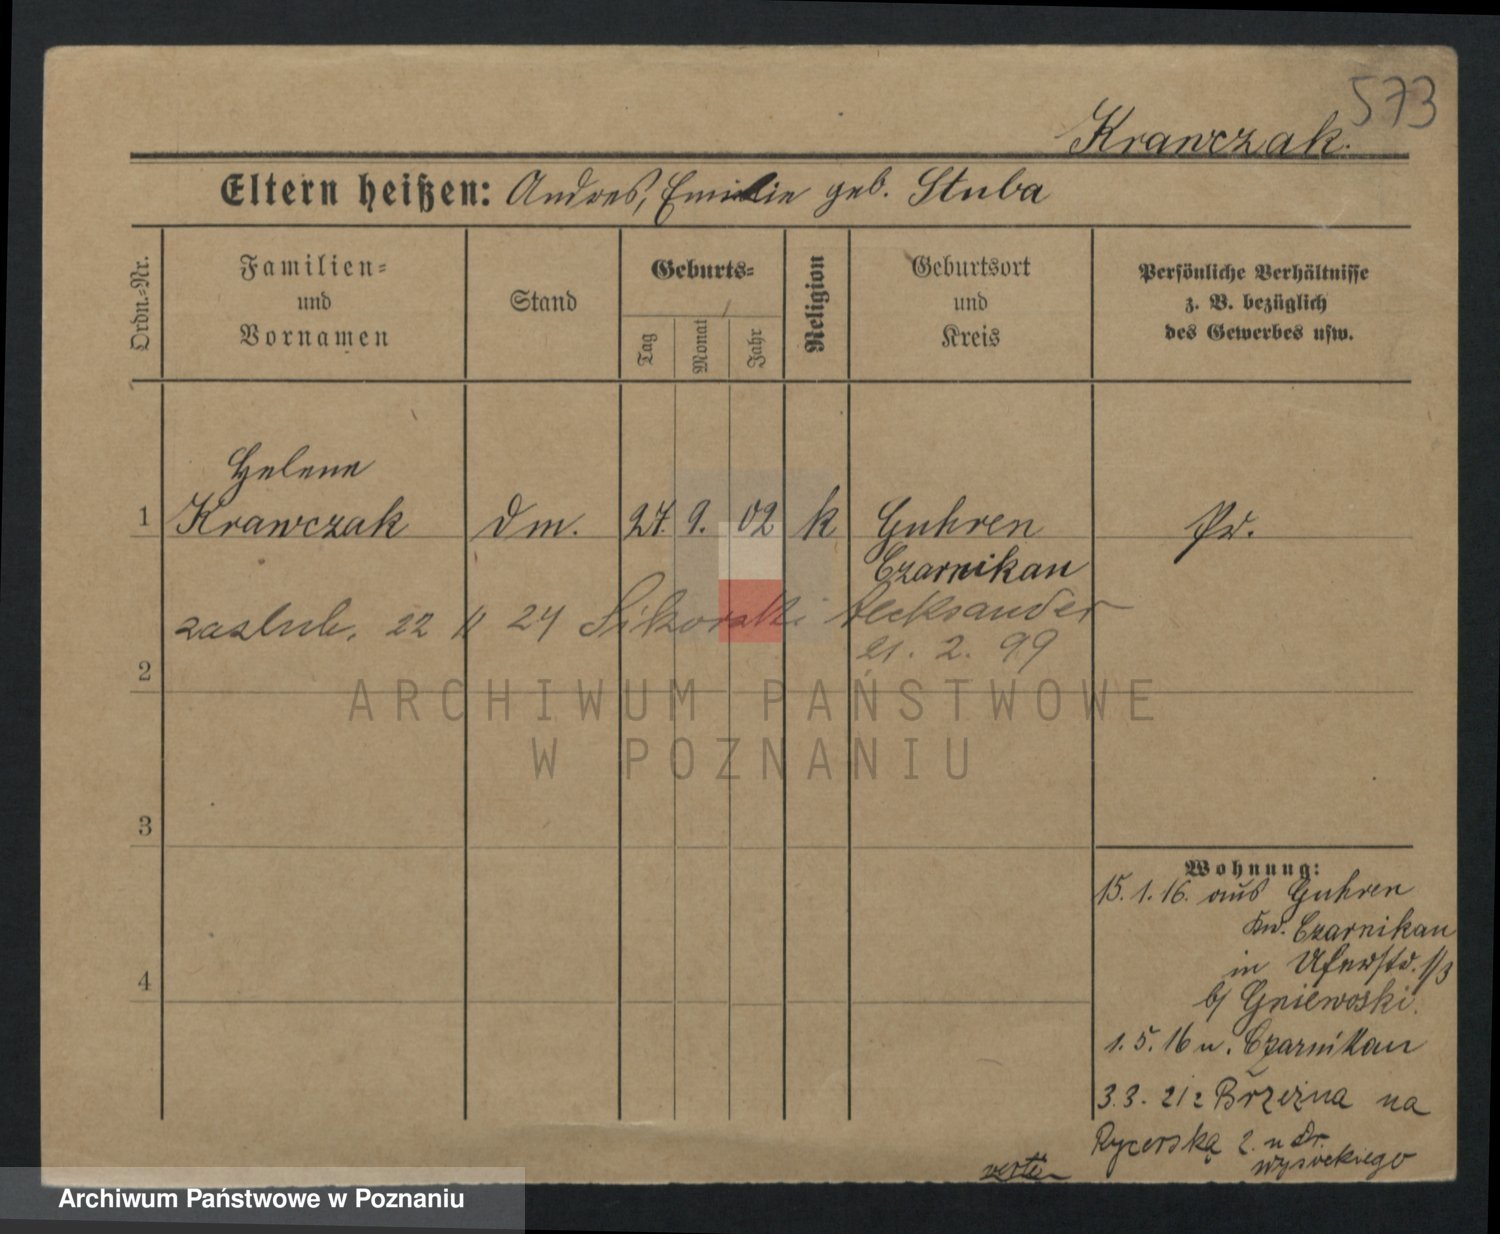 573
Krawczak.
Eltern heißen: Andreas, Emilie geb. Stuba
Ordn.=Nr.
Familien=
und
Vornamen
Stand
Geburts=
Tag
Monat
Jahr
Religion
Geburtsort
und
Kreis
Persönliche Verhältnisse
z. B. bezüglich
des Gewerbes usw.
Helene
1 Krawczak dm. 27. 9. 02 k Guhren Pr.
Czarnikau
zaślub. 22 11 24 Sikorski Alecksander
21. 2. 99
2
3
4
Wohnung:
15. 1. 16. aus Guhren
Kr. Czarnikau
in Uferstr. 1/3
b/ Gniewoski.
1. 5. 16 n. Czarnikau
3. 3. 21 z Brzeźna na
Rycerską 2. u Dr.
Wysockiego
ARCHIWUM PAŃSTWOWE
W POZNANIU
Archiwum Państwowe w Poznaniu